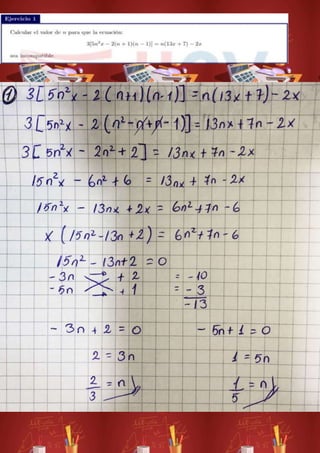 Ejercicio 1
Calcular el valor de n para que la ecuación:
3[5n²x − 2(n + 1)(n − 1)] = n(13x + 7) − 2x
sea incompatible.
① 3[5n²x - 2(n+1)(n-1)] = n(13x+7)-2x
3[5n²x - 2(n²-n+n-1)] = 13nx+7n-2x
3[5n²x - 2n²+2] = 13nx+7n-2x
15n²x - 6n²+6 = 13nx + 7n -2x
15n²x - 13nx +2x = 6n²+7n -6
x (15n²-13n+2) = 6n²+7n-6
15n² - 13n+2 =0
-3n + 2 = -10
-5n + 1 = - 3
-13
- 3n + 2 = 0 - 5n + 1 = 0
2 = 3n 1 = 5n
2/3 = n 1/5 = n